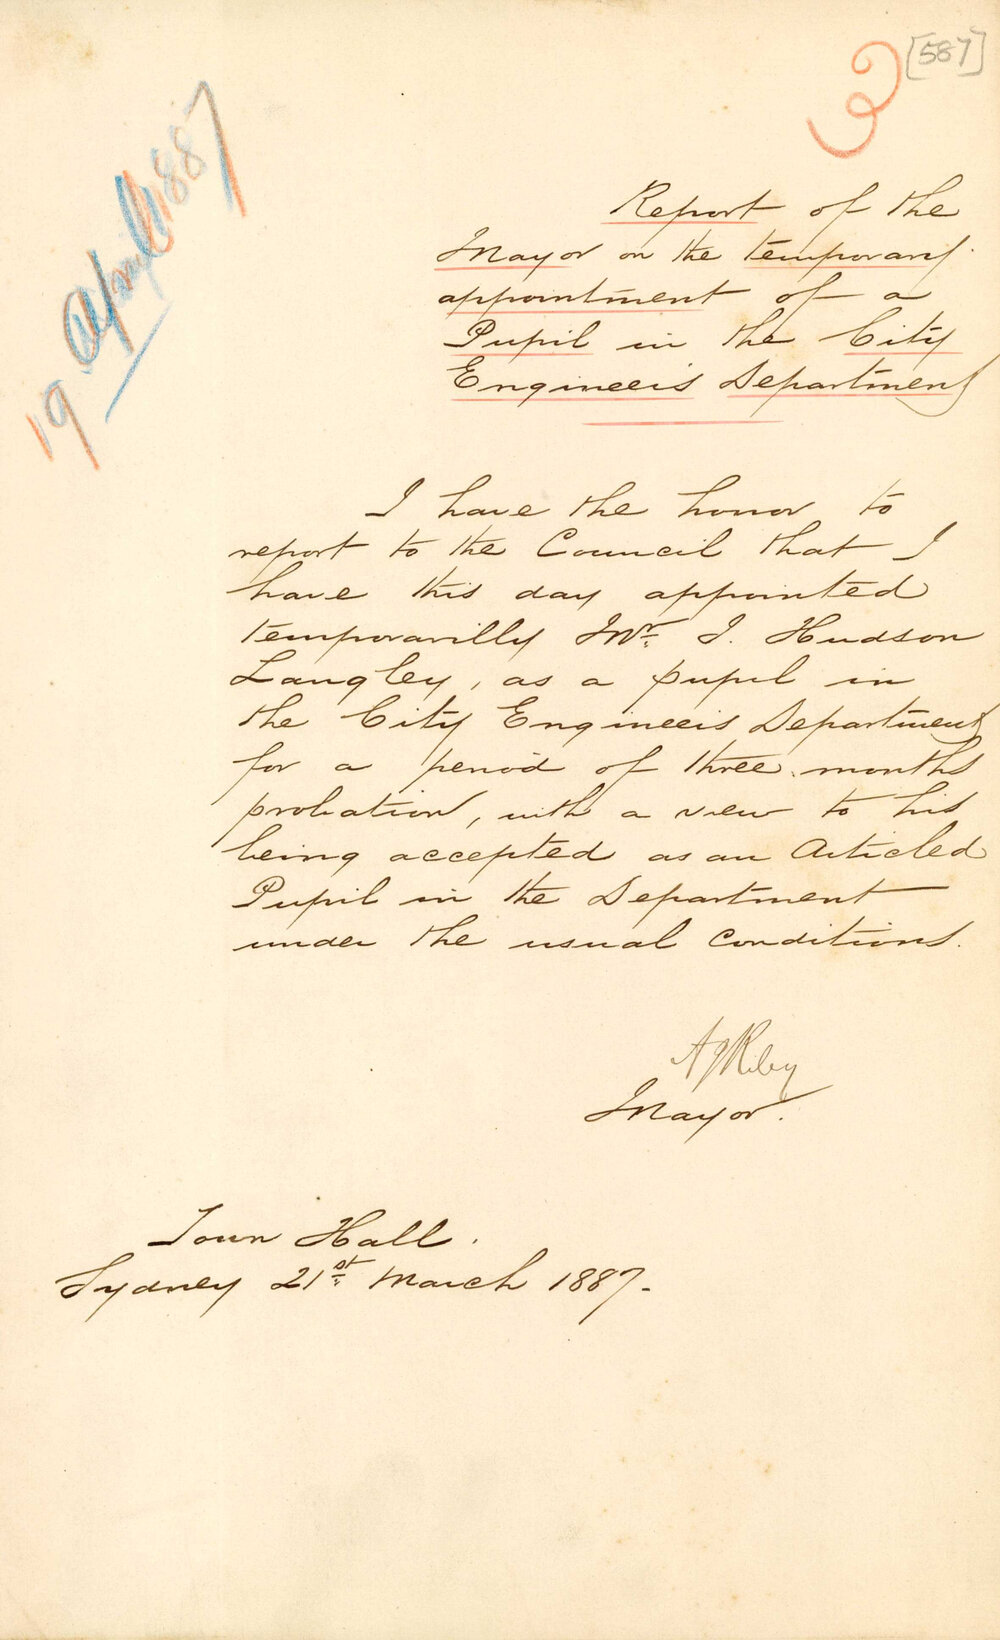 [587]
3
19 April 1887
Report of the
Mayor on the temporary
appointment of a
Pupil in the City
Engineers Department
I have the honor to
report to the Council that I
have this day appointed
temporarilly Mr. J. Hudson
Langley, as a pupil in
the City Engineers Department
for a period of three months
probation, with a view to his
being accepted as an Articled
Pupil in the Department
under the usual conditions.
A J Riley
Mayor.
Town Hall.
Sydney 21st March 1887.